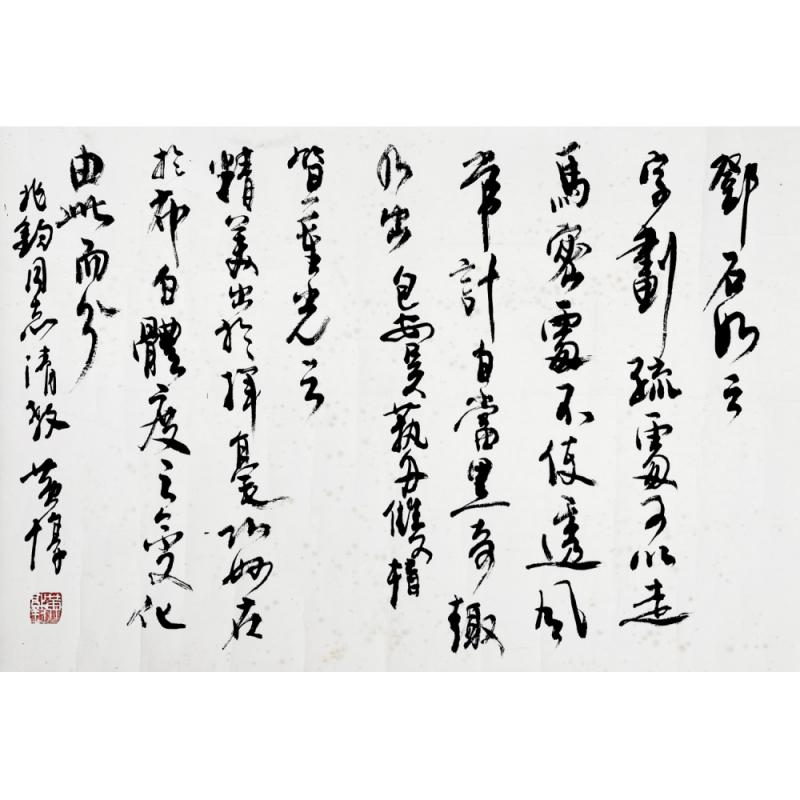 鄧石如云
字劃疏處可以走
馬密處不使透風
常計白當黑奇趣
乃出 包安吳藝舟雙楫
笪重光云
精美出於揮毫巧妙在
於布白體度之變化
由此而分
兆鈞同志清教 黄惇